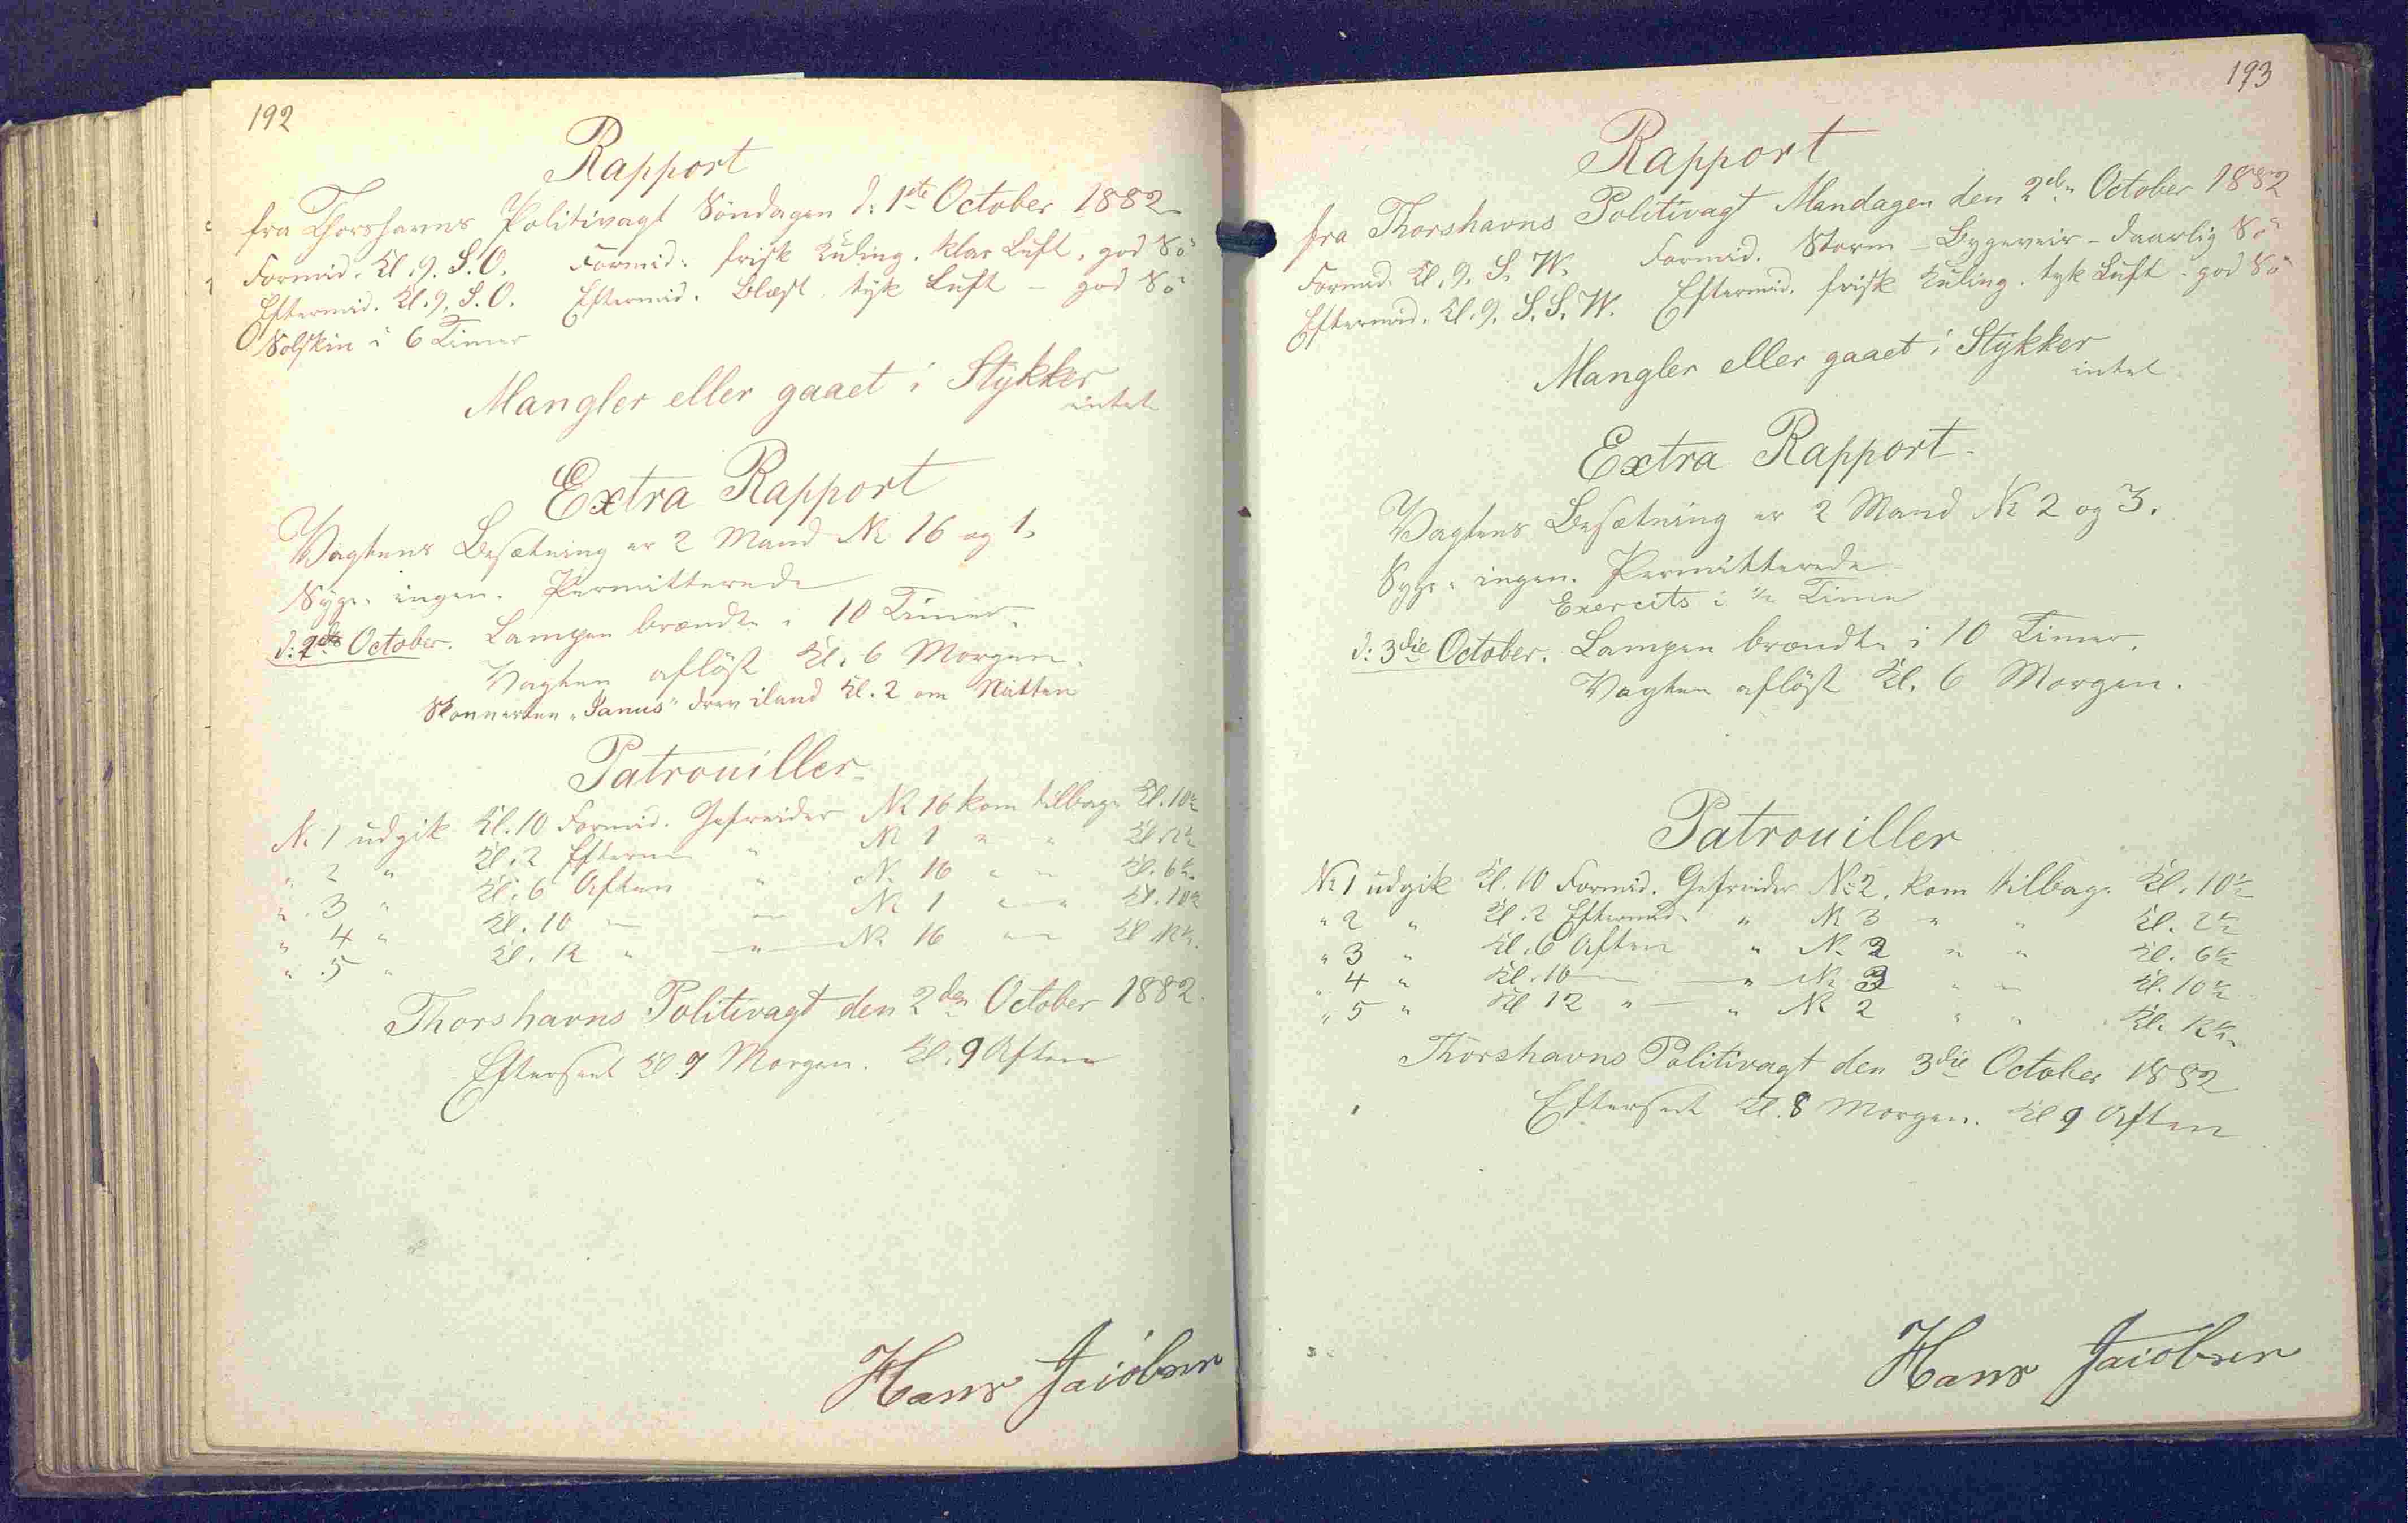 192
Rapport
fra Thorshavns Politivagt Söndagen d: 1ste October 1882
Formid. Kl. 9. S.O. Formid: frisk Kuling. klar Luft, god Sö
Eftermid. Kl. 9. S.O. Eftermid. Blæst tyk Luft - god Sö
Solskin i 6 Timer
Mangler eller gaaet i Stykker
intet
Extra Rapport
Vagtens Besætning er 2 Mand No 16 og 1.
Syge. ingen. Permitterede
d: 2den October. Lampen brændte i 10 Timer.
Vagten aflöst Kl. 6 Morgen.
Skonnerten "Janus" drev iland Kl. 2 om Natten
Patrouiller
No 1 udgik Kl. 10 Formid. Gefreider No 16 kom tilbage Kl. 10½
" 2 " Kl. 2 Efterm " No 1 " " Kl. 2½
" 3 " Kl. 6 Aften " No 16 " " Kl. 6½
" 4 " Kl. 10 — — No 1 " " Kl. 10½
" 5 " Kl. 12 " — " — No 16 " " Kl 12½.
Thorshavns Politivagt den 2den October 1882.
Efterseet Kl. 9 Morgen. Kl. 9 Aften
Hans Jacobsen
193
Rapport
fra Thorshavns Politivagt Mandagen den 2den October 1882
Formid. Kl. 9. S. W. Formid. Storm - Bygeveir - daarlig Sö
Eftermid. Kl. 9. S. S. W. Eftermid. frisk Kuling. tyk Luft - god Sö
Mangler eller gaaet i Stykker
intet
Extra Rapport
Vagtens Besætning er 2 Mand No 2 og 3.
Syge. ingen. Permitterede
Exercits i ½ Time
d: 3die October. Lampen brændte i 10 Timer.
Vagten aflöst Kl. 6 Morgen.
Patrouiller
No 1 udgik Kl. 10 Formid. Gefreider No 2. kom tilbage Kl. 10½
" 2 " Kl. 2 Eftermid. " No 3 " " Kl. 2½
" 3 " Kl. 6 Aften " No 2 " " Kl. 6½
" 4 " Kl. 10 — — " No 3 " " Kl. 10½
" 5 " Kl 12 " — " No 2 " " Kl. 12½
Thorshavns Politivagt den 3die October 1882
Efterseet Kl. 8 Morgen. Kl 9 Aften
Hans Jacobsen